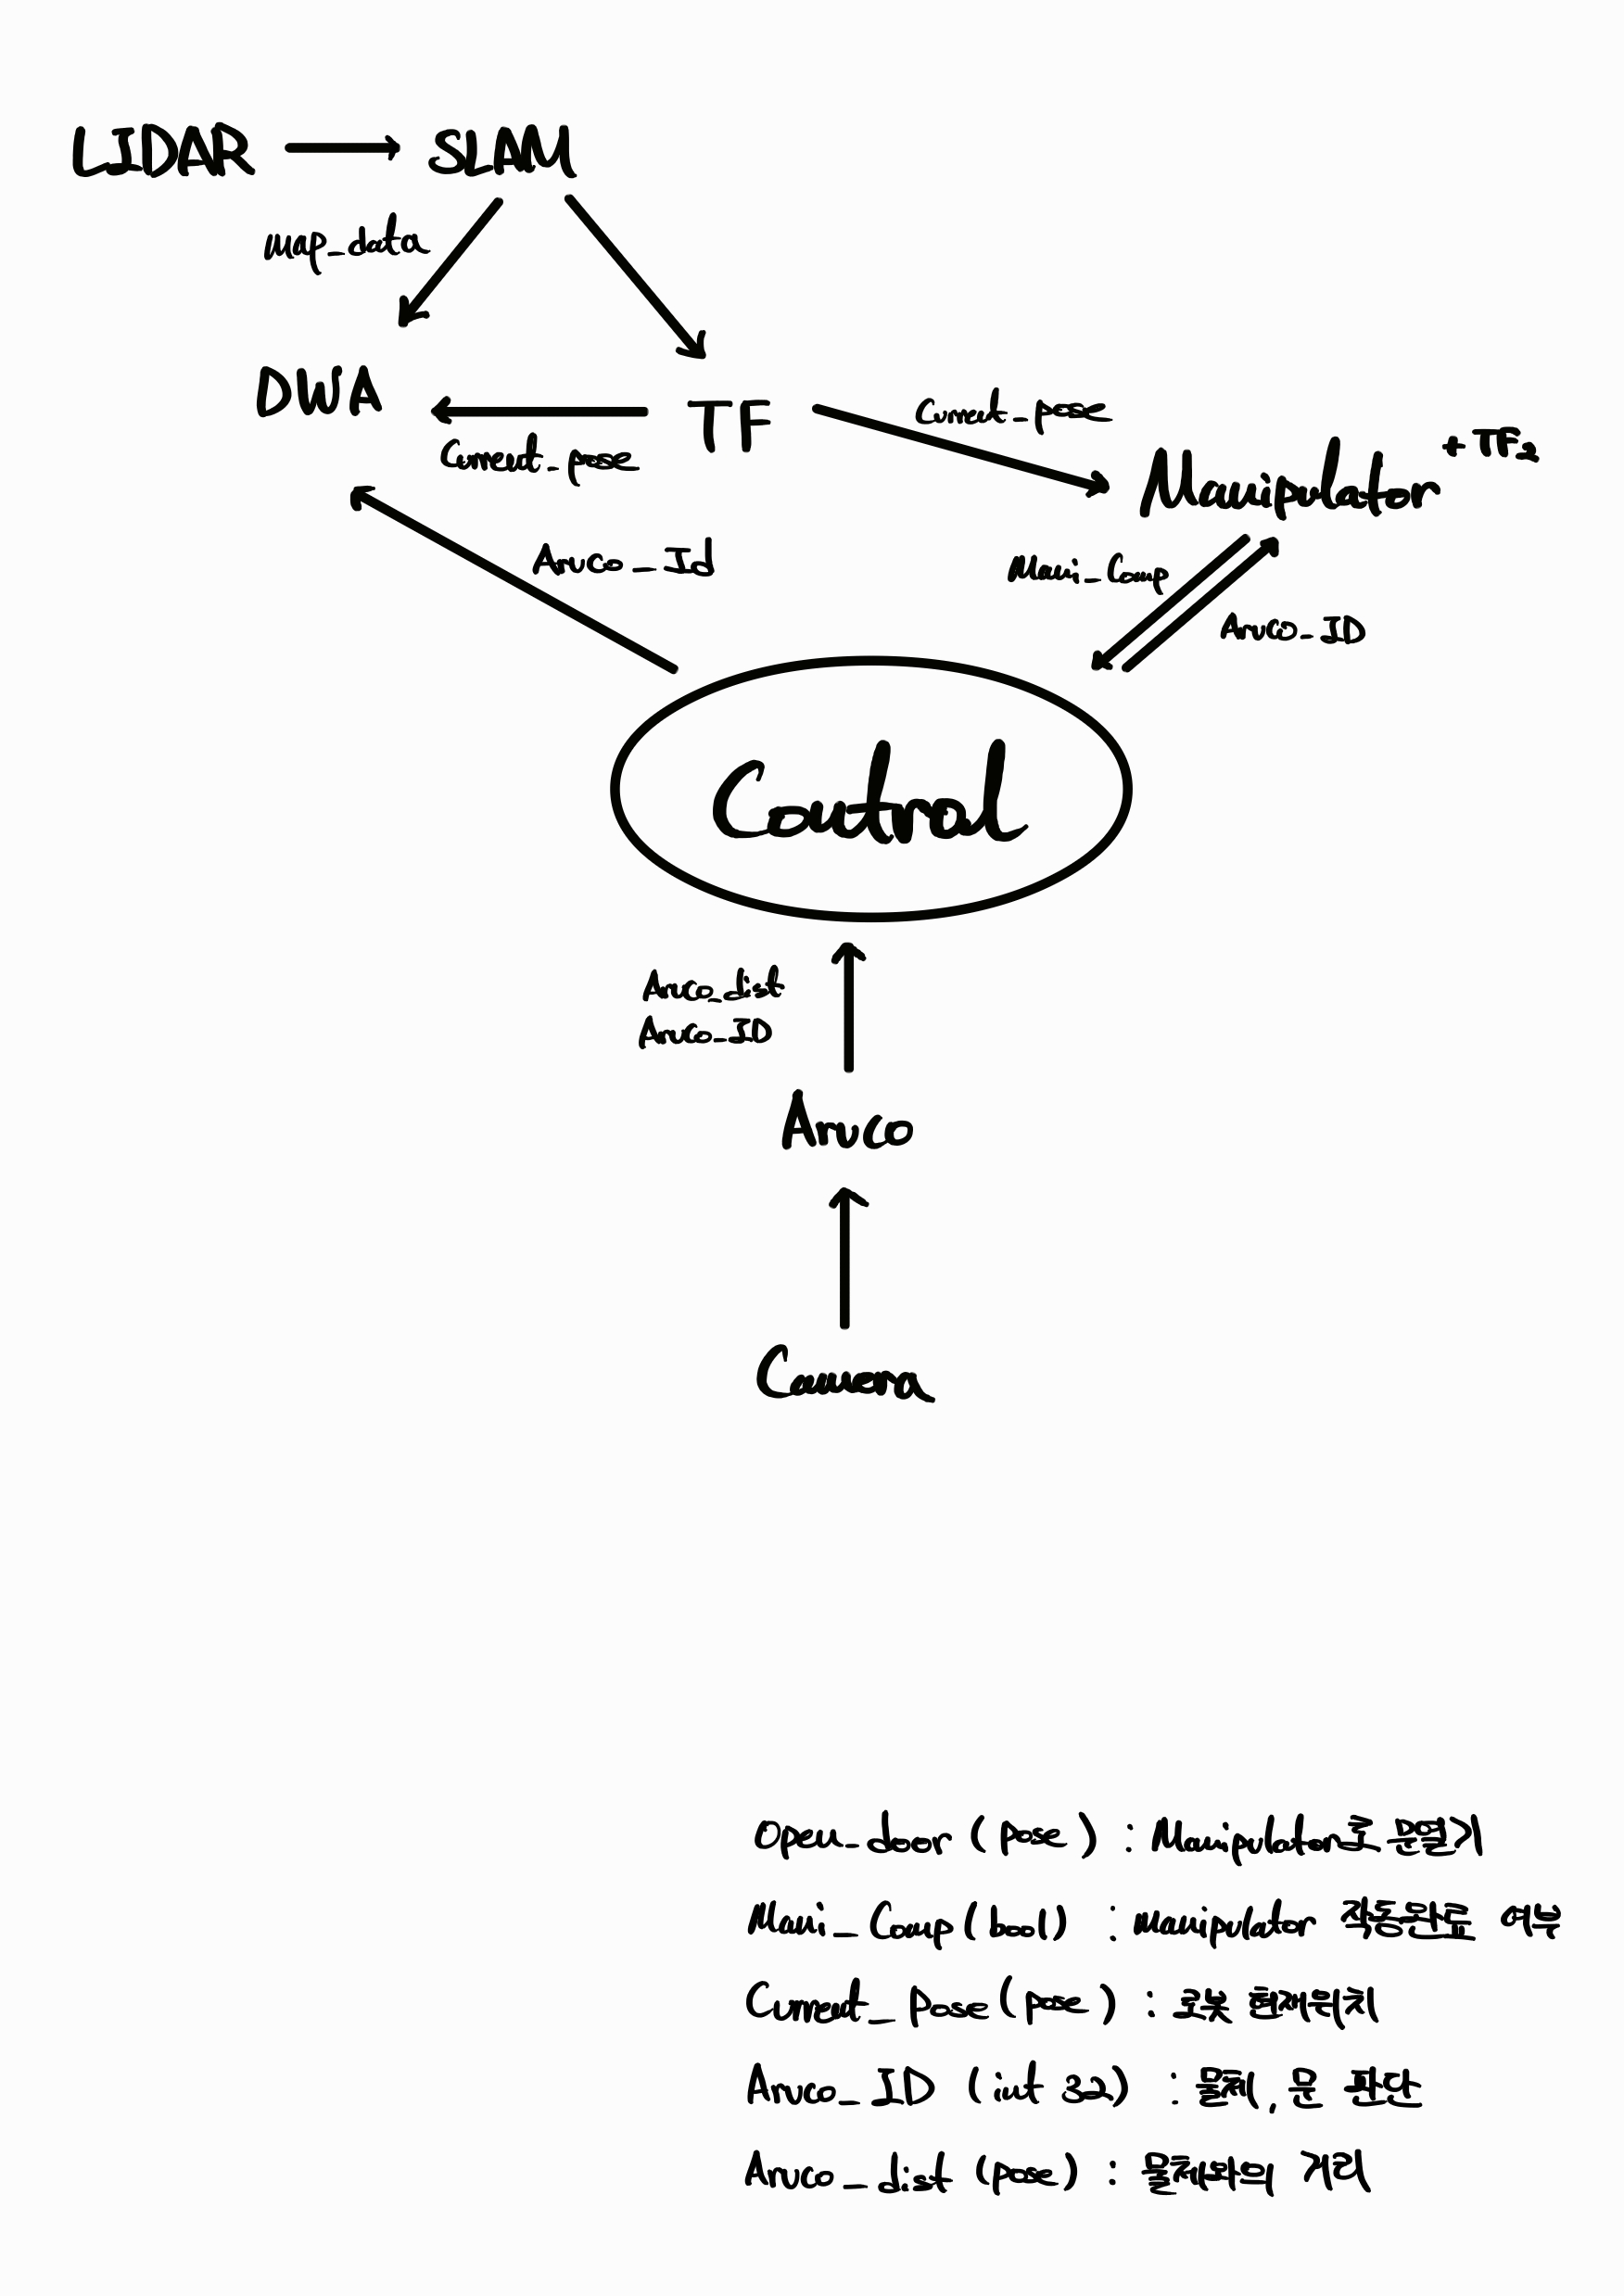 LIDAR
SLAM
map_data
DWA
TF
Current_pose
Current_pose
Manipulator
+TF2
Aruco_Id
Mani_Comp
Aruco_ID
Control
Aruco_dist
Aruco_ID
Aruco
Camera
Open_door (pose) : Manipulator로 문열기
Mani_Comp (bool) : manipulator 작동완료 여부
Current_pose (pose) : 로봇 현재위치
Aruco_ID (int 32) : 물체, 문 판단
Aruco_dist (pose) : 물체와의 거리